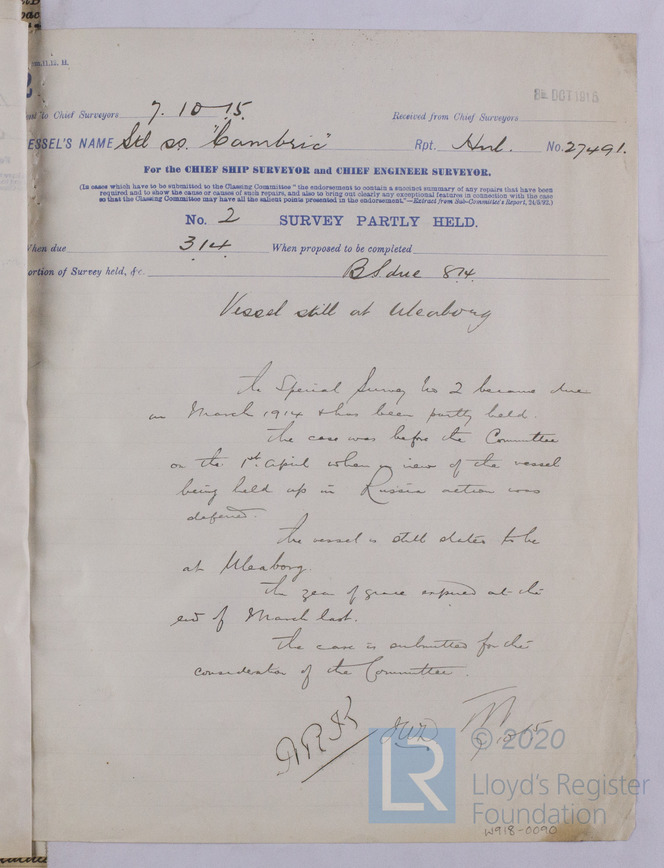 8 OCT 1915
ent to Chief Surveyors 7.10.15. Received from Chief Surveyors
ESSEL'S NAME Stl ss. "Cambric" Rpt. Hul. No. 27491.
For the CHIEF SHIP SURVEYOR and CHIEF ENGINEER SURVEYOR.
(In cases which have to be submitted to the Classing Committee "the endorsement to contain a succinct summary of any repairs that have been
required and to show the cause or causes of such repairs, and also to bring out clearly any exceptional features in connection with the case
so that the Classing Committee may have all the salient points presented in the endorsement."—Extract from Sub-Committee's Report, 24/9/92.)
No. 2 SURVEY PARTLY HELD.
When due 3.14. When proposed to be completed
ortion of Survey held, &c. BS due 8.14.
Vessel still at Uleaborg
The Special Survey No 2 became due
in March 1914 & has been partly held.
The case was before the Committee
on the 1st. April when in view of the vessel
being held up in Russia action was
deferred.
The vessel is still stated to be
at Uleaborg.
The year of grace expired at the
end of March last.
The case is submitted for the
consideration of the Committee.
ARK JWD
© 2020
LR Lloyd's Register
Foundation
W918-0090